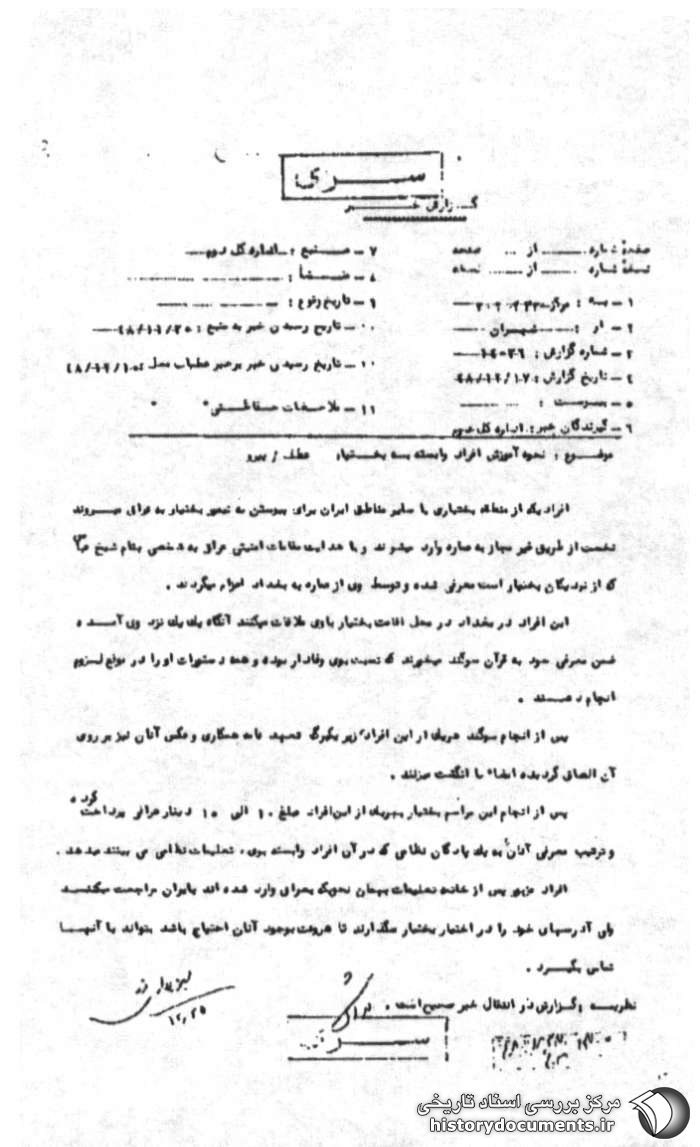 سری
گزارش خبر
صفحهٔ شماره ........ از ... صفحه
نسخهٔ شماره ........ از ........ نسخه
۱ - به : مرکز
۲ - از : تهران
۳ - شماره گزارش :
۴ - تاریخ گزارش : ۴۸/۱۲/۱۷
۵ - پیوست :
۶ - گیرندگان خبر : اداره کل سوم
۷ - منبع : اداره کل سوم
۸ - منشأ :
۹ - تاریخ وقوع :
۱۰ - تاریخ رسیدن خبر به منبع :
۱۰ - تاریخ رسیدن خبر به رهبر عملیات محل :
۱۱ - ملاحظات حفاظتی
موضوع : نحوه آموزش افراد وابسته به بختیار عطف / پیرو
افرادیکه از منطقه بختیاری یا سایر مناطق ایران برای پیوستن به تیمور بختیار به عراق میروند
نخست از طریق غیر مجاز به عماره وارد میشوند و با هدایت مقامات امنیتی عراق به شخصی بنام شیخ
که از نزدیکان بختیار است معرفی شده و توسط وی از عماره به بغداد اعزام میگردند .
این افراد در بغداد در محل اقامت بختیار با وی ملاقات میکنند آنگاه یک یک نزد وی آمده
ضمن معرفی خود به قرآن سوگند میخورند که نسبت بوی وفادار بوده و همه دستورات او را در موقع لزوم
انجام دهند .
پس از انجام سوگند هریک از این افراد زیر یکبرگ تعهد نامه همکاری و عکس آنان نیز بر روی
آن الصاق گردیده امضاء یا انگشت میزنند .
پس از انجام این مراسم بختیار بهریک از این افراد مبلغ ۱۰ الی ۱۵ دینار عراقی پرداخت کرده
و ترتیب معرفی آنان به یک پادگان نظامی که در آن افراد وابسته بوی ، تعلیمات نظامی می بینند میدهد .
افراد مزبور پس از خاتمه تعلیمات بهمان نحویکه بعراق وارد شده اند بایران مراجعت میکنند
ولی آدرسهای خود را در اختیار بختیار میگذارند تا هروقت بوجود آنان احتیاج باشد بتواند با آنها
تماس بگیرد .
نظریه : گزارش در انتقال خبر صحیح است .
۱۲/۲۵
سری
مرکز بررسی اسناد تاریخی
historydocuments.ir